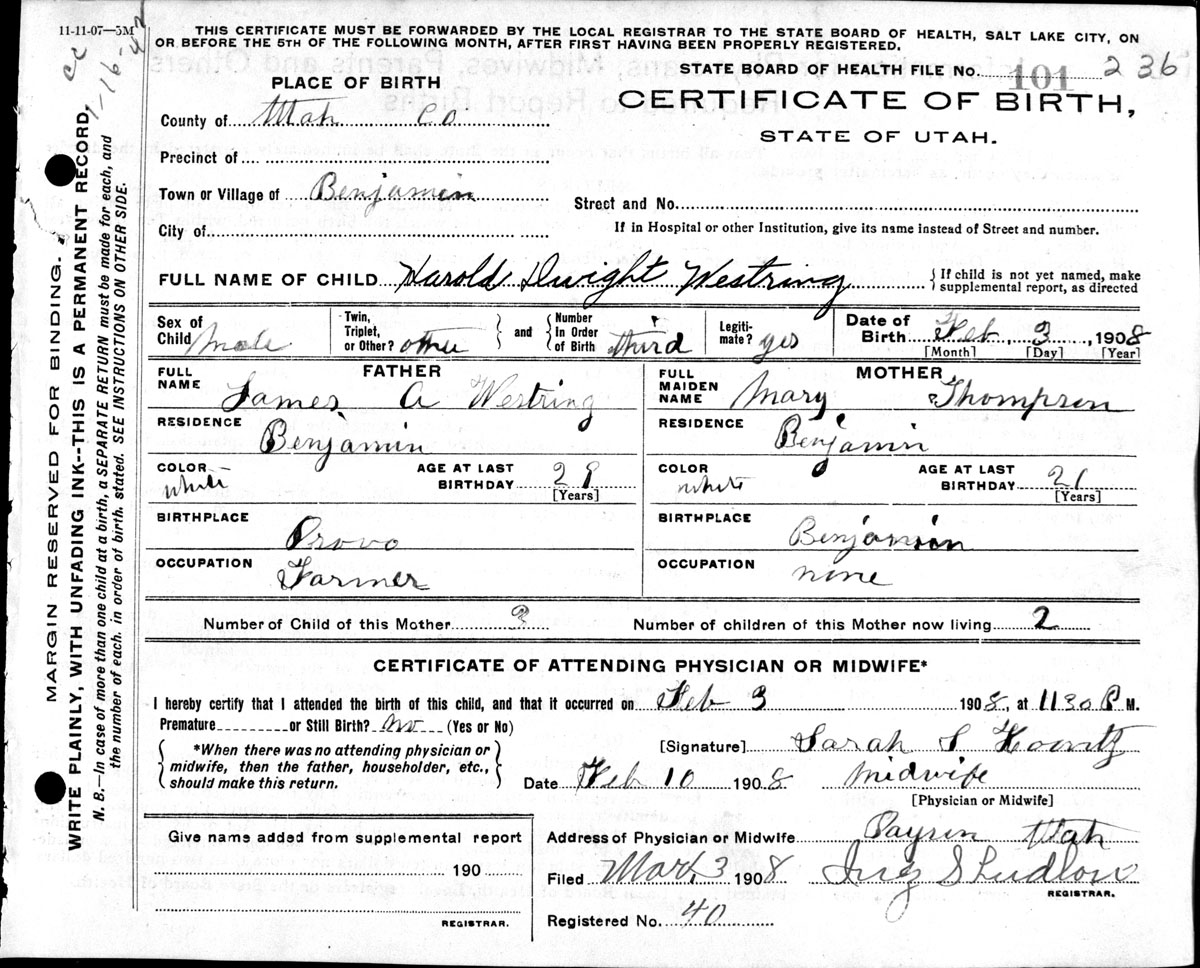 11-11-07—5M
THIS CERTIFICATE MUST BE FORWARDED BY THE LOCAL REGISTRAR TO THE STATE BOARD OF HEALTH, SALT LAKE CITY, ON
OR BEFORE THE 5TH OF THE FOLLOWING MONTH, AFTER FIRST HAVING BEEN PROPERLY REGISTERED.
STATE BOARD OF HEALTH FILE NO. 101 236
PLACE OF BIRTH
CERTIFICATE OF BIRTH,
STATE OF UTAH.
County of Utah Co
Precinct of
Town or Village of Benjamin
Street and No.
City of
If in Hospital or other Institution, give its name instead of Street and number.
FULL NAME OF CHILD Harold Dwight Westring
{ If child is not yet named, make
supplemental report, as directed
Sex of Child Male
Twin, Triplet, or Other? other
and
Number In Order of Birth third
Legitimate? yes
Date of Birth Feb 3, 1908
[Month] [Day] [Year]
FATHER
FULL NAME James A Westring
RESIDENCE Benjamin
COLOR white
AGE AT LAST BIRTHDAY 29
[Years]
BIRTHPLACE Provo
OCCUPATION Farmer
MOTHER
FULL MAIDEN NAME Mary Thompson
RESIDENCE Benjamin
COLOR white
AGE AT LAST BIRTHDAY 21
[Years]
BIRTHPLACE Benjamin
OCCUPATION none
Number of Child of this Mother 3
Number of children of this Mother now living 2
CERTIFICATE OF ATTENDING PHYSICIAN OR MIDWIFE*
I hereby certify that I attended the birth of this child, and that it occurred on Feb 3 1908, at 1130 P M.
Premature or Still Birth? No (Yes or No)
*When there was no attending physician or
midwife, then the father, householder, etc.,
should make this return.
[Signature] Sarah S Koontz
Date Feb 10 1908 Midwife
[Physician or Midwife]
Give name added from supplemental report
190
REGISTRAR.
Address of Physician or Midwife Payson Utah
Filed Mar. 3 1908
REGISTRAR.
Registered No. 40
MARGIN RESERVED FOR BINDING.
WRITE PLAINLY, WITH UNFADING INK--THIS IS A PERMANENT RECORD.
N. B.—In case of more than one child at a birth, a SEPARATE RETURN must be made for each, and
the number of each. in order of birth. stated. SEE INSTRUCTIONS ON OTHER SIDE.